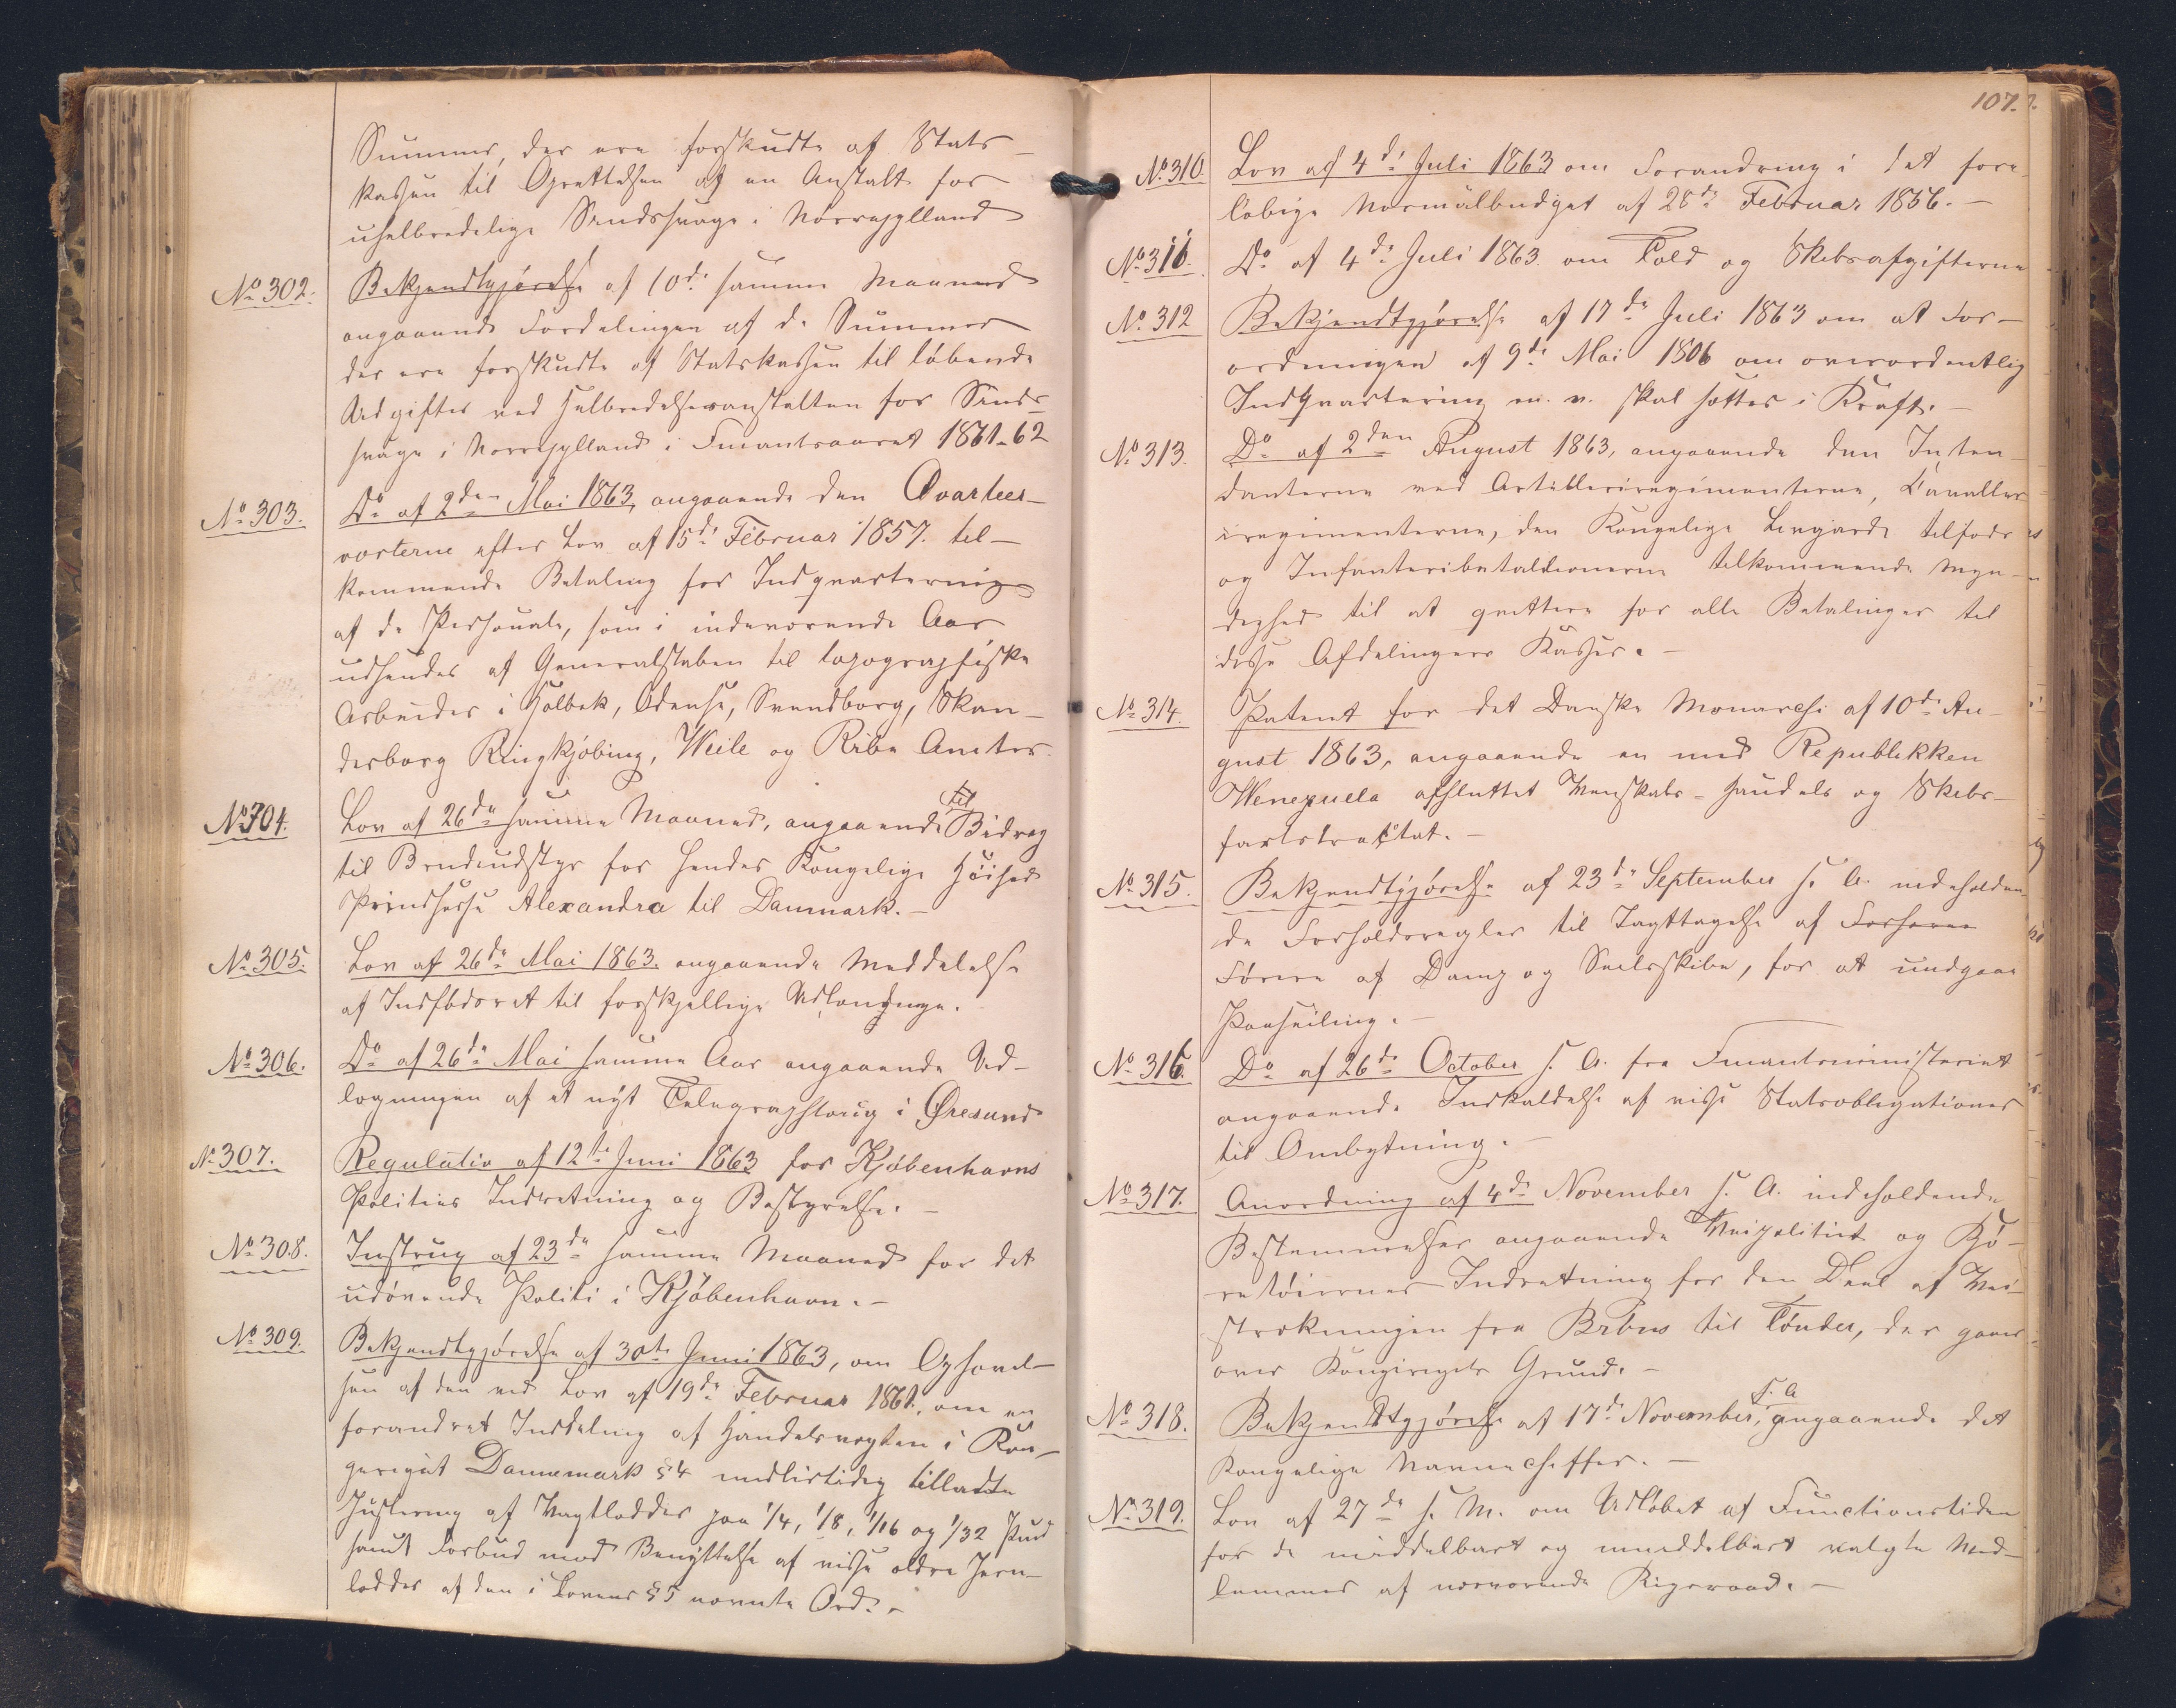 Summer, der ere forskudte af Stats-
kassen til Oprettelsen af en Anstalt for
uhelbredelige Sindssvage i Nørrejylland
No 302. Bekjendtgjørelse af 10de samme Maaned
angaaende Fordelingen af de Summer
der ere forskudte af Statskassen til løbende
Udgifter ved Helbredelsesanstalten for Sinds-
svage i Nørrejylland i Finantsaaret 1861-62
No 303. Do af 2den Mai 1863, angaaende den Qvarteer-
værterne efter Lov af 15de Februar 1857. til-
kommende Betaling for Indqvartering
af de Personale, som i indeværende Aar
udsendes af Generalstaben til topographiske
Arbeider i Holbek, Odense, Svendborg, Skan-
derborg Ringkjøbing, Veile og Ribe Amter.
No 304. Lov af 26de samme Maaned, angaaende til Bidrag
til Brudeudstyr for Hendes Kongelige Høihed
Prindsesse Alexandra til Danmark.-
No 305. Lov af 26de Mai 1863. angaaende Meddelelse
af Indfødsret til forskjellige Udlændinge.
No 306. Do af 26de Mai samme Aar angaaende Ud-
lægningen af et nyt Telegraphtoug i Øresund
No 307. Regulativ af 12te Juni 1863 for Kjøbenhavns
Polities Indretning og Bestyrelse.-
No 308. Instrux af 23de samme Maaned for det
udøvende Politi i Kjøbenhavn.-
No 309. Bekjendtgjørelse af 30te Juni 1863, om Ophævel-
sen af den ved Lov af 19de Februar 1861, om en
forandret Inddeling af Handelsvægten i Kon-
geriget Dannemark § 4 midlertidig tilladte
Justering af Vægtlodder paa 1/4, 1/8, 1/16 og 1/32 Pund
samt Forbud mod Benyttelse af visse ældre Jern-
lodder af den i Lovens § 5 nævnte Ord.-
107.
No 310. Lov af 4de Juli 1863 om Forandring i det fore-
løbige Normalbudget af 28de Februar 1856.-
No 311. Do af 4de Juli 1863. om Told og Skibsafgifterne
No 312 Bekjendtgjørelse af 17de Juli 1863 om at For-
ordningen af 9de Mai 1806 om overordentlig
Indqvartering m. v. skal sættes i Kraft.-
No 313. Do af 2den August 1863, angaaende den Inten-
danterne ved Artilleriregimenterne, Cavalle-
riregimenterne, den Kongelige Livgarde tilfods
og Infanteribataillonerne tilkommende Myn-
dighed til at qvittere for alle Betalinger til
disse Afdelingers Kasser.-
No 314. Patent for det Danske Monarchi af 10de Au-
gust 1863, angaaende en med Republikken
Wenezuela afsluttet Venskabs- Handels og Skibs-
fartstractat.-
No 315. Bekjendtgjørelse af 23de September s. A. indeholden-
de Forholdsregler til Iagttagelse af
Førere af Damp og Seilskibe, for at undgaae
Paaseiling.-
No 316. Do af 26de October s. A. fra Finantsministeriet
angaaende Indkaldelse af visse Statsobligationer
til Ombytning.-
No 317. Anordning af 4de November s. A. indeholdende
Bestemmelser angaaende Veipolitiet og Kjø-
retøiernes Indretning for den Deel af Vei-
strækningen fra Bredebro til Tønder, der gaaer
over Kongerigets Grund.-
No 318. Bekjendtgjørelse af 17de November, s. A angaaende det
Kongelige Navnechiffer.-
No 319. Lov af 27de s. M. om Udløbet af Functionstiden
for de middelbart og umiddelbart valgte Med-
lemmer af nærværende Rigsraad.-